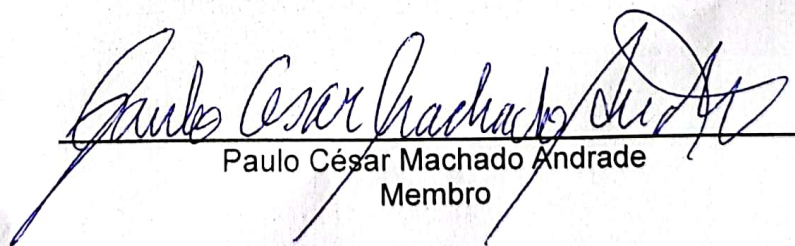 Paulo Cesar Machado Andrade
Paulo César Machado Andrade
Membro